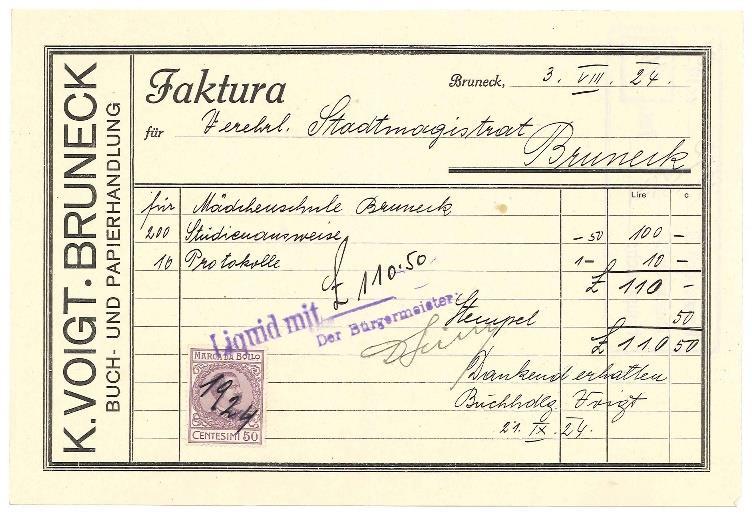 K. VOIGT. BRUNECK
BUCH- UND PAPIERHANDLUNG
Faktura
Bruneck, 3. VIII. 24.
für Verehrl. Stadtmagistrat
Bruneck
Lire c
für Mädchenschule Bruneck
200 Studienausweise -50 100 -
10 Protokolle 1- 10 -
£ 110.50
£ 110 -
Liquid mit
Der Bürgermeister:
Stempel 50
£ 110 50
Dankend erhalten
Buchhdlg. Voigt
21. IX. 24.
MARCA DA BOLLO
1924
CENTESIMI 50